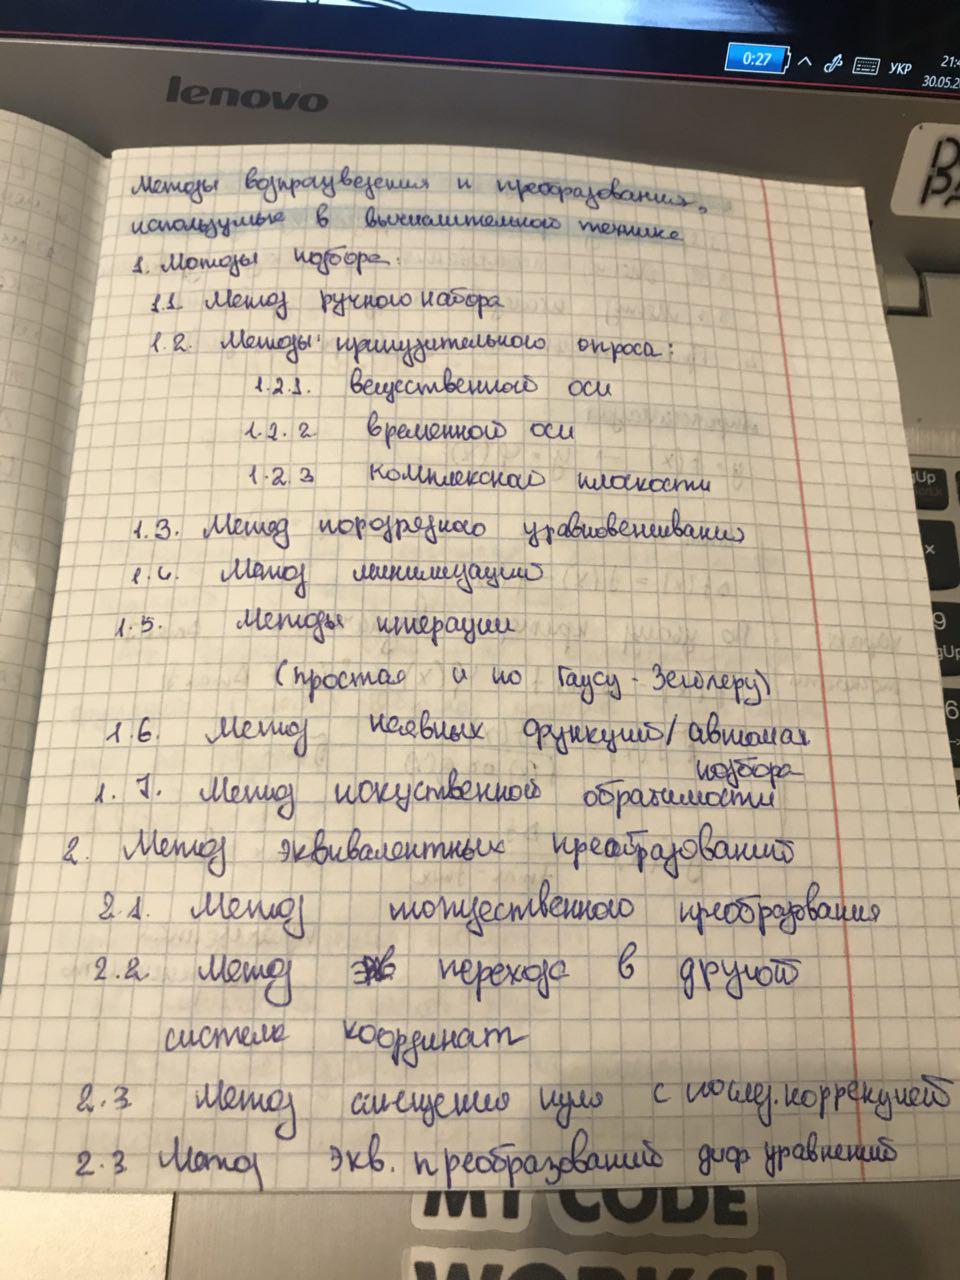 0:27
УКР
21:4
30.05.20
lenovo
Методы возпроизведения и преобразования,
используемые в вычислительной технике
1. Методы подбора:
1.1. Метод ручного набора
1.2. Методы принудительного опроса:
1.2.1. вещественной оси
1.2.2 временной оси
1.2.3 комплексной плоскости
1.3. Метод поразрядного уравновешивания
1.4. Метод минимизаций
1.5. Методы итерации
(простая и по Гаусу - Зейделеру)
1.6. Метод неявных функций/автомат
подбора
1.7. Метод искуственной обратимости
2. Метод эквивалентных преобразований
2.1. Метод тождественного преобразования
2.2 Метод перехода в другой
система координат
2.3 Метод смещения нуля с послед. коррекцией
2.3 Метод экв. преобразований диф уравнений
MY CODE
WORKS!
gUp
9
gUp
6